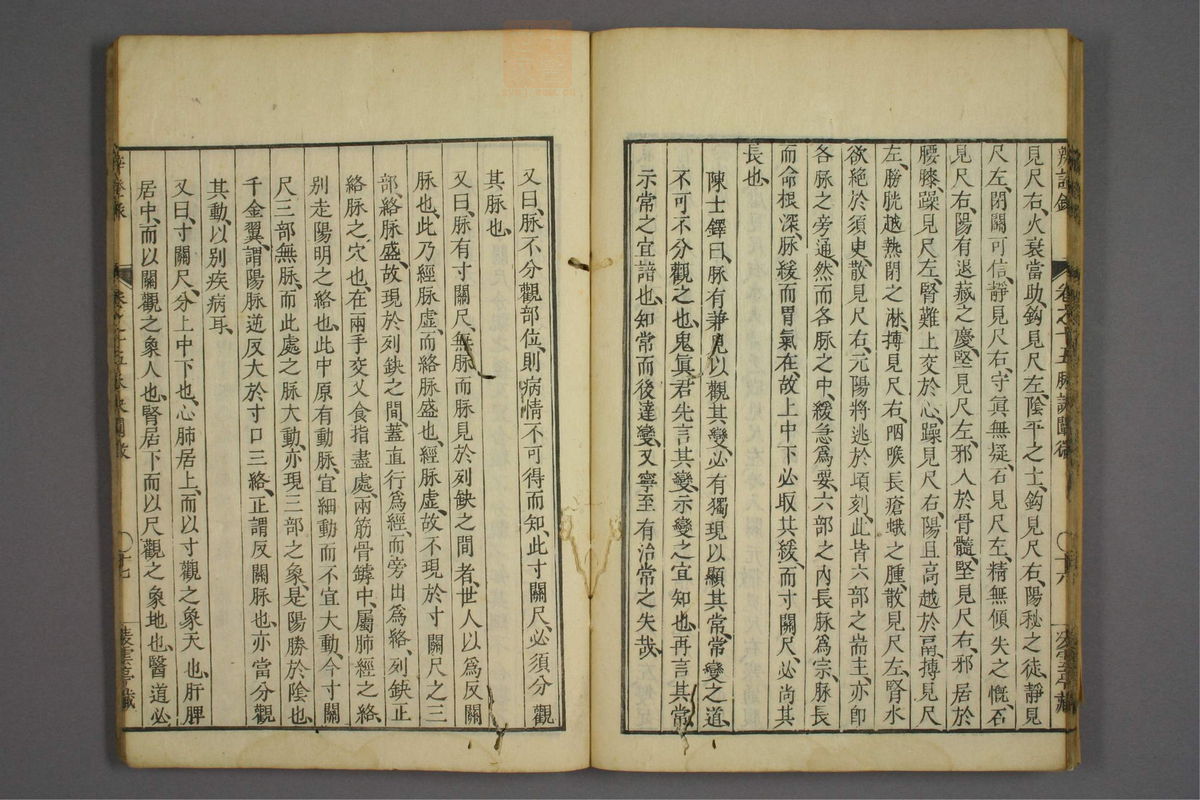 見尺右、火衰當助、鈎見尺左、陰平之士、鈎見尺右、陽秘之徒、靜見
尺左、閉關可信、靜見尺右、守眞無疑、石見尺左、精無傾失之慨、石
見尺右、陽有退藏之慶、堅見尺左、邪入於骨髓、堅見尺右、邪居於
腰膝、躁見尺左、腎難上交於心、躁見尺右、陽且高越於鬲、搏見尺
左、膀胱越熱閉之淋、搏見尺右、咽喉長瘡蛾之腫、散見尺左、腎水
欲絶於須臾、散見尺右、元陽將逃於頃刻、此皆六部之耑主、亦卽
各脉之旁通、然而各脉之中、緩急爲要、六部之內、長脉爲宗、脉長
而命根深、脉緩而胃氣在、故上中下必取其緩、而寸關尺必尚其
長也、
陳士鐸曰、脉有兼見以觀其變、必有獨現以顯其常、常變之道、
不可不分觀之也、鬼眞君先言其變、示變之宜知也、再言其常、
示常之宜諳也、知常而後達變、又寧至有治常之失哉、
辨證錄 卷之十五脉訣闡微 〇十六
又曰、脉不分觀部位、則病情不可得而知、此寸關尺、必須分觀
其脉也、
又曰、脉有寸關尺、無脉而脉見於列缺之間者、世人以爲反關
脉也、此乃經脉虛、而絡脉盛也、經脉虛、故不現於寸關尺之三
部、絡脉盛、故現於列缺之間、蓋直行爲經、而旁出爲絡、列缺正
絡脉之穴也、在兩手交叉食指盡處、兩筋骨罅中、屬肺經之絡、
別走陽明之絡也、此中原有動脉、宜細動而不宜大動、今寸關
尺三部無脉、而此處之脉大動、亦現三部之象、是陽勝於陰也、
千金翼、謂陽脉逆反大於寸口三絡、正謂反關脉也、亦當分觀
其動、以別疾病耳、
又曰、寸關尺、分上中下也、心肺居上、而以寸觀之象天也、肝脾
居中、而以關觀之象人也、腎居下而以尺觀之象地也、醫道必
〇十七